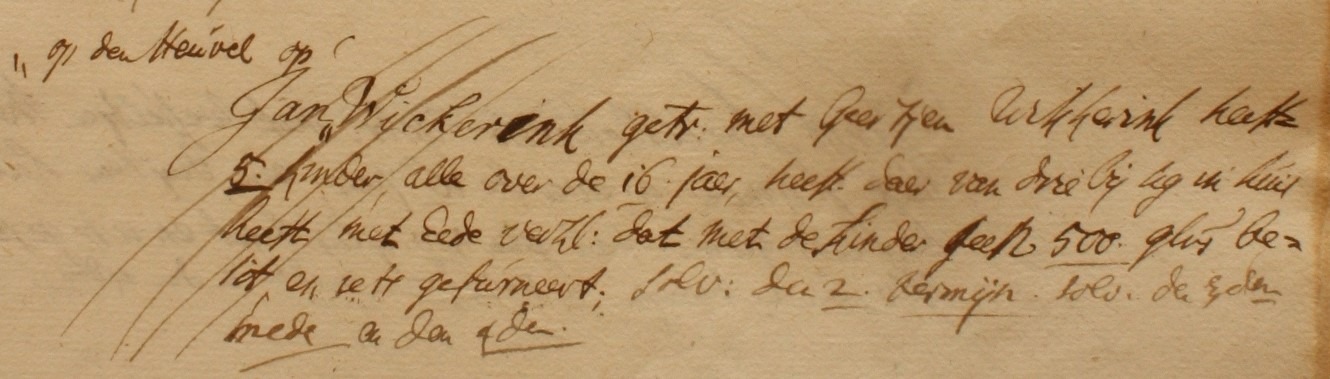 " op den Heuvel op
Jan Wijckerink getr: met Geertjen Wilkerink heeft
5. kinder, alle over de 16 jaer, heeft daer van drie bij sig in huis
heeft met Eede verkl: dat met de kinder geen 500 glns be=
sit en iets gefurneert; solv: den 2. termijn. solv. de 3den
mede en den 4den.